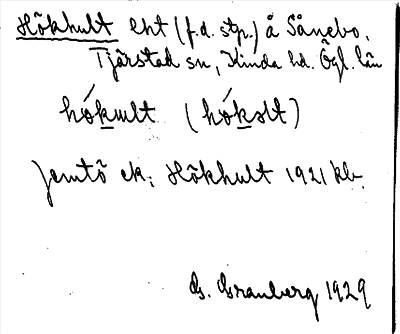 Hökhult lht (f.d. stp.) å Sånebo,
Tjärstad sn, Kinda hd. Ögl. län
hókult (hókslt)
Jemtö ek; Hökhult 1921 kb.
G. Granberg 1929